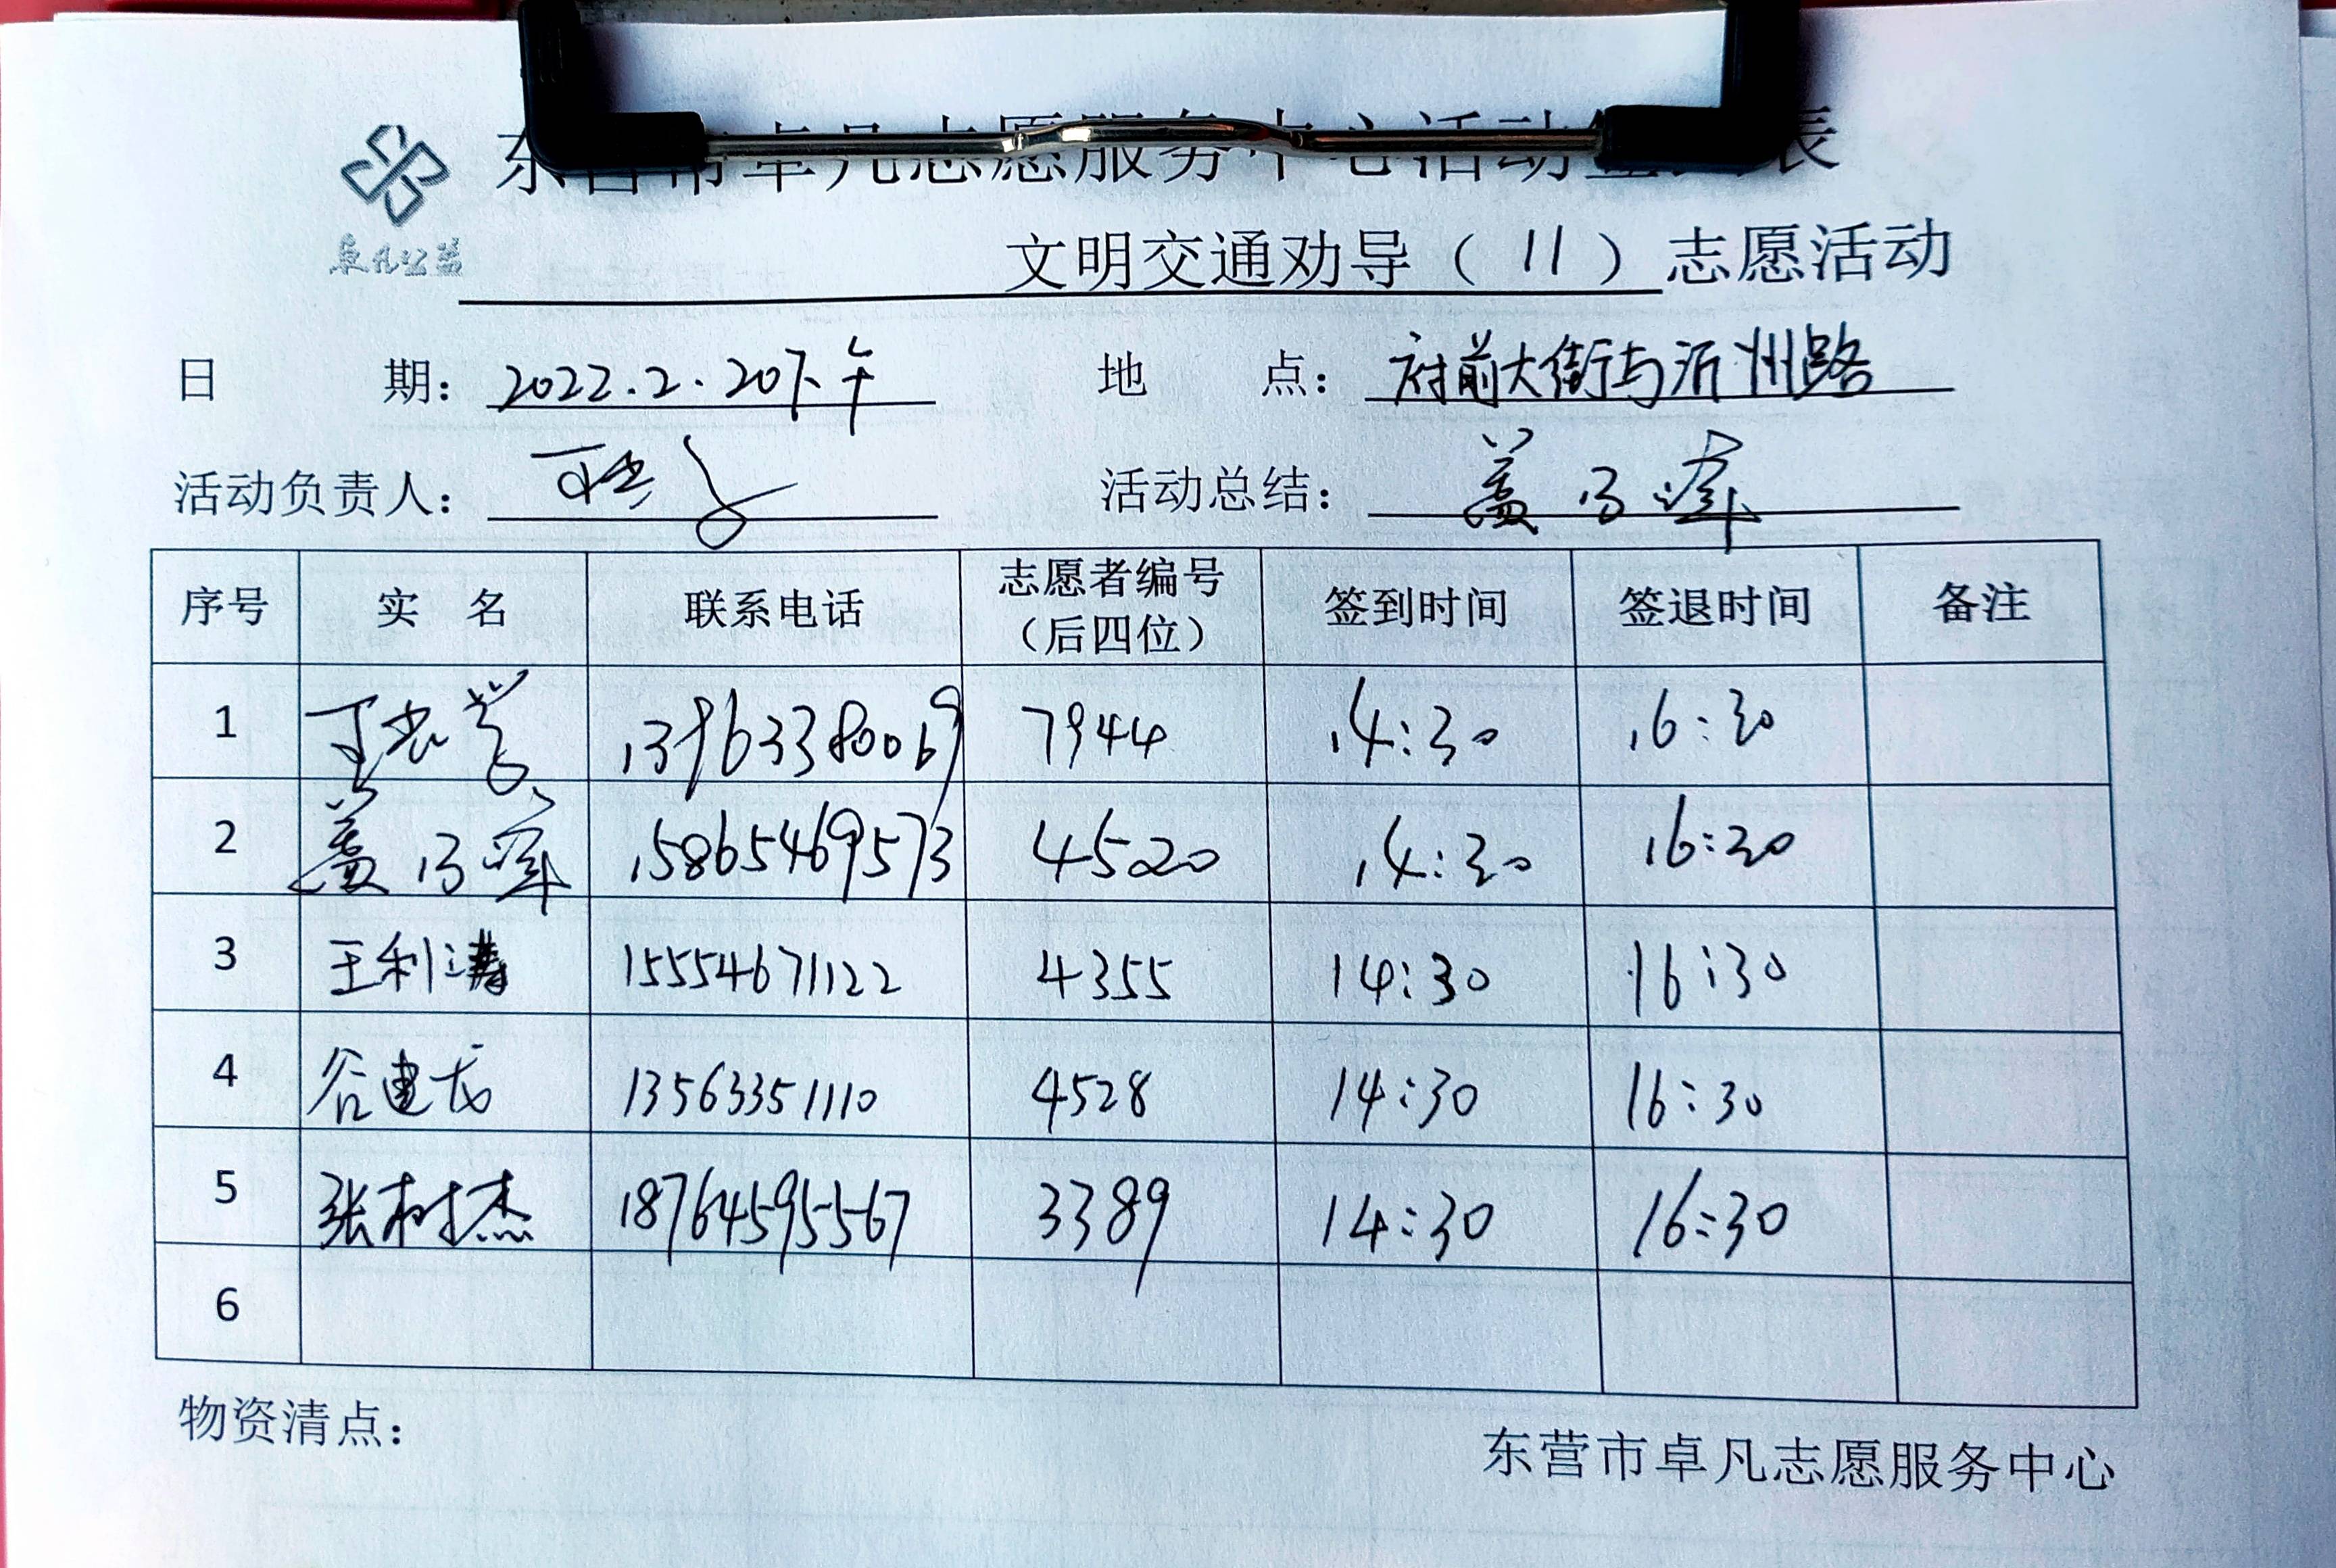 东营市卓凡志愿服务中心活动签到表
卓凡公益
文明交通劝导（11）志愿活动
日 期：2022.2.20下午 地 点：府前大街与沂州路
活动负责人： 活动总结：
序号 实 名 联系电话 志愿者编号（后四位） 签到时间 签退时间 备注
1 13963380069 7944 14:30 16:30
2 15865469573 4520 14:30 16:30
3 王利涛 15554671122 4355 14:30 16:30
4 谷建成 13563351110 4528 14:30 16:30
5 张树杰 18764595567 3389 14:30 16:30
6
物资清点：
东营市卓凡志愿服务中心